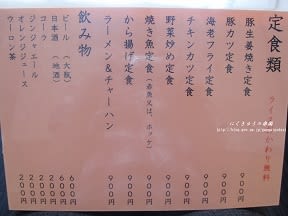 定食類
ライ かわり無料
豚生姜焼き定食 900円
豚カツ定食 900円
海老フライ定食 900円
チキンカツ定食 900円
野菜炒め定食 900円
焼き魚定食(赤魚又は、ホッケ) 900円
から揚げ定食 900円
ラーメン&チャーハン 900円
飲み物
ビール(大瓶) 600円
日本酒(地酒) 600円
コーラ 200円
ジンジャエール 200円
オレンジジュース 200円
ウーロン茶 200円
にくきゅうの楽園